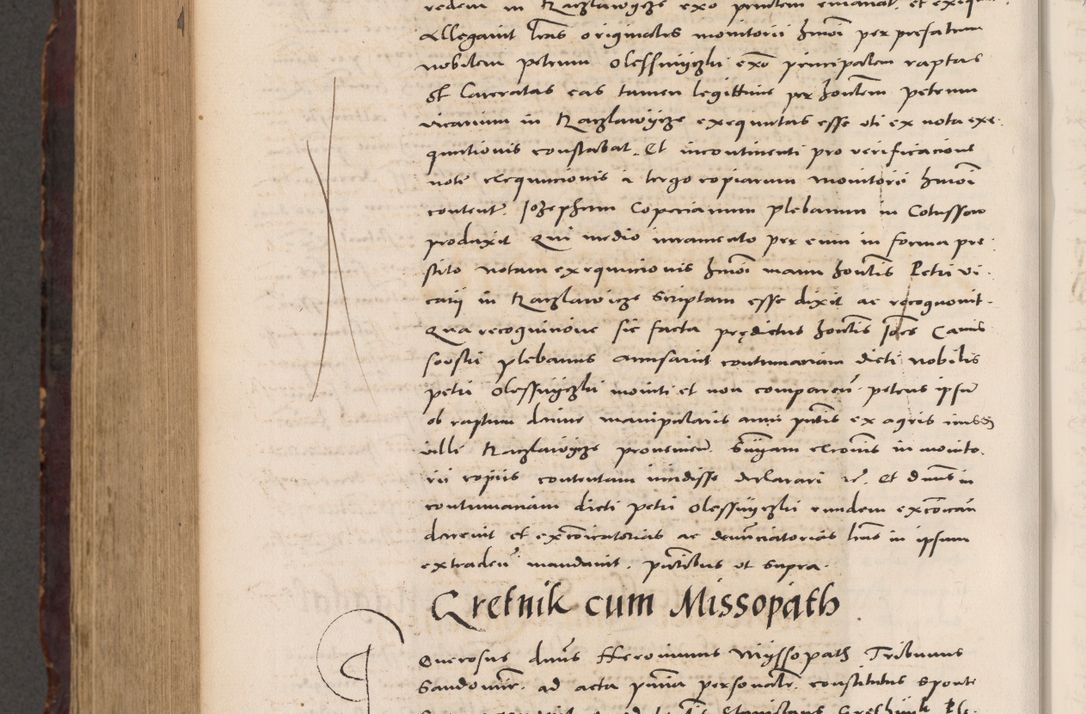 redem in Raczlawycze exo presentem emanat. et exequ
Allegavit lras originales monitorii hmoi per prefatum
nobilem petrum Olessnyczki exo principalem raptas
et laceratas eas tamen legittime per hontem petrum
vicarium in Raczlawycze exequutas esse uti ex nota exe
quutionis constabat. Et incontinenti pro verificacione
note exequucionis a tergo copiarum monitorii hmoi
content. Iozephum Coperianum plebanum in Cotussow
produxit Qui medio iuramento per eum in forma pre
stito notam exequucionis hmoi manu hontis Petri vi
carii in Raczlawicze scriptam esse dixit ac recognovit.
Qua recognicione sic facta prędictus hontis Joes
plebanus accusavit contumaciam dicti nobilis
petri Olessnyczki moniti et non comparen. petens ipsum
ob raptum decime manipularis anni putis ex agris
ville Raczlawycze provenien. Smam excomis in monito
rii copiis contentam incidisse declarari etc. Et dnus in
contumaciam dicti petri Olessnyczki eundem excoican
decrevit et excoicatorias ac denunciatorias lras in ipsum
extraden mandavit. putibus ut supra.
Gretnik cum Missopath
Generosus dnus Heronimus Myssopath Tribunus
Sandomir. ad acta pntia personalr. constitutus sponte
Stanislaus Grethnik